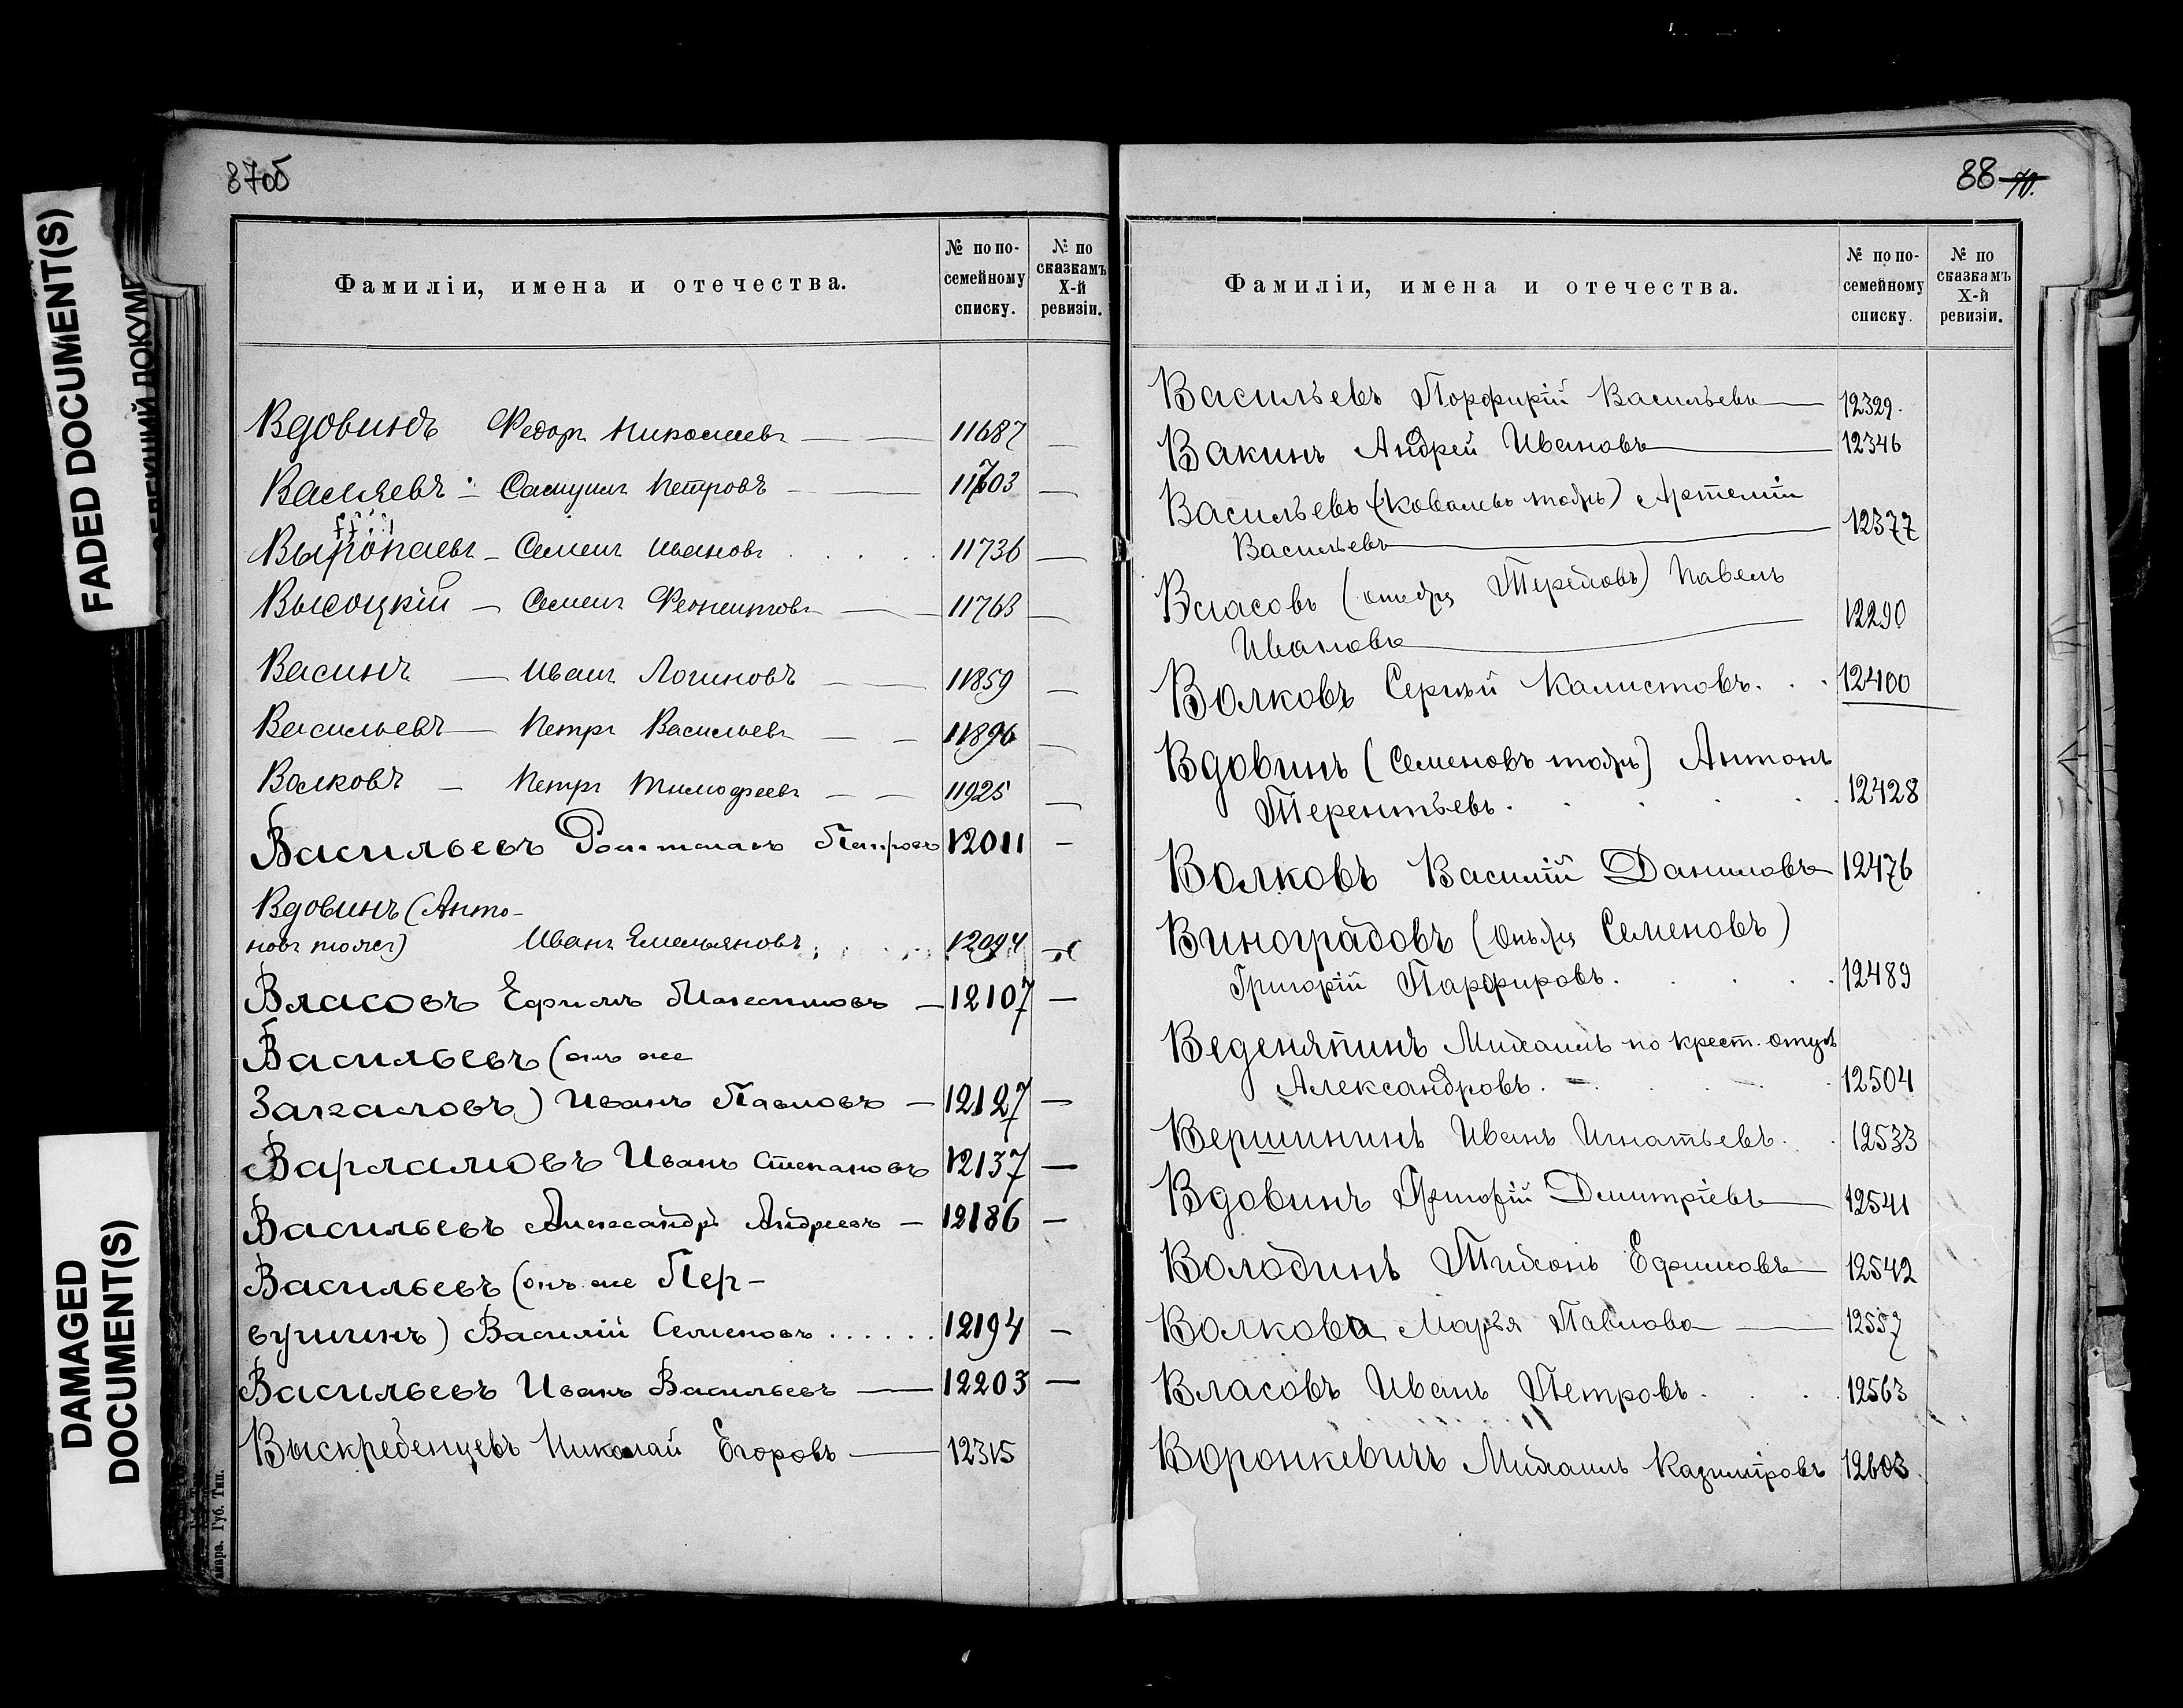 FADED DOCUMENT(S)
DAMAGED
DOCUMENT(S)
87об
Фамиліи, имена и отечества.
№ по по-
семейному
списку.
№ по
сказкамъ
X-й
ревизіи.
Вдовинъ Федоръ Николаевъ — — 11687 —
Васляевъ — Самуилъ Петровъ — — 11703 —
Выропаевъ — Семенъ Ивановъ . . . . 11736 —
Высоцкій — Семенъ 11763 —
Васинъ — Иванъ Логиновъ — — 11859 —
Васильевъ — Петръ Васильевъ — — 11896 —
Волковъ — Петръ Тимофеевъ — — 11925 —
Васильевъ Петровъ 12011 —
Вдовинъ (Анто-
новъ тожъ) Иванъ Емельяновъ 12094
Власовъ Ефимъ — 12107 —
Васильевъ (онъ же
Иванъ Павловъ — 12127 —
Варламовъ Иванъ Степановъ 12137 —
Васильевъ Александръ Андреевъ — 12186 —
Васильевъ (онъ же Пер-
вушинъ) Василій Семеновъ ...... 12194 —
Васильевъ Иванъ Васильевъ — 12203 —
Выскребенцевъ Николай Егоровъ — 12315
мара. Губ. Тип.
88 70.
Фамиліи, имена и отечества.
№ по по-
семейному
списку.
№ по
сказкамъ
X-й
ревизіи.
Васильевъ Порфирій Васильевъ — 12329.
Вакинъ Андрей Ивановъ — 12346
Васильевъ (Ковалевъ тожъ) Артемій
Васильевъ — 12377
Власовъ ( Павелъ
Ивановъ — 12290
Волковъ Сергѣй Калистовъ. . . 12400
Вдовинъ (Семеновъ тожъ) Антонъ
Терентьевъ. . . . . 12428
Волковъ Василій Даниловъ — 12476
Виноградовъ (онъ же Семеновъ)
Григорій Парфировъ. . . . . 12489
Веденяпинъ Михаилъ по крест. отцу
Александровъ. . . . . 12504
Вершининъ Иванъ Игнатьевъ. . 12533
Вдовинъ Григорій Дмитріевъ — 12541
Володинъ Тихонъ Ефимовъ — 12542
Волкова Марья Павлова — 12557
Власовъ Иванъ Петровъ. . . . 12563
Воронкевичъ Михаилъ Казиміровъ 12603.